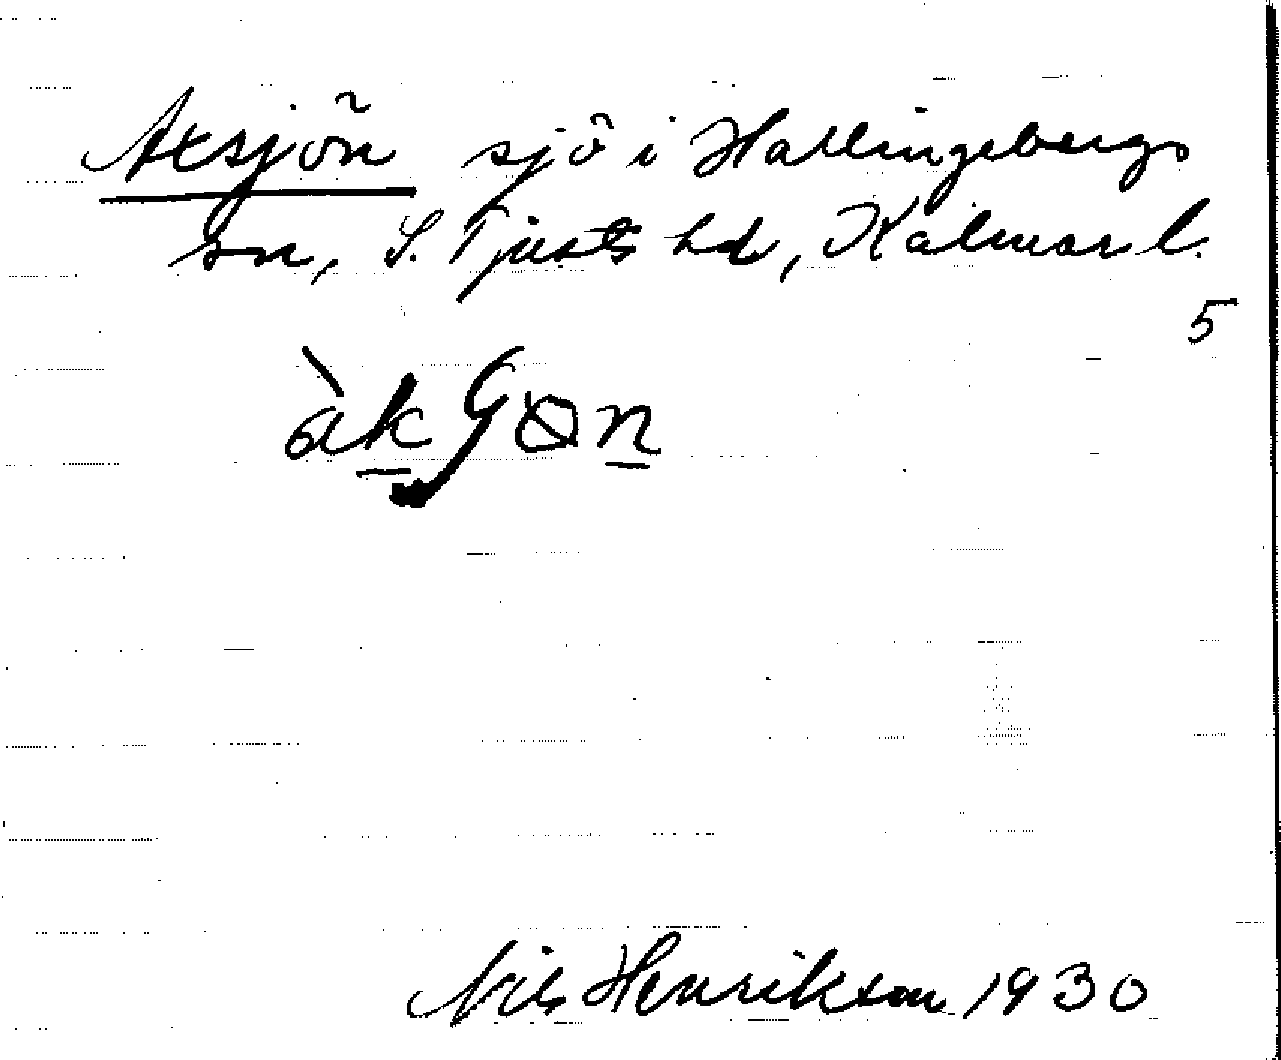 Axsjön sjö i Hallingebergs
sn, S. Tjusts hd, Kalmar l.
5
Nils Henrikson 1930